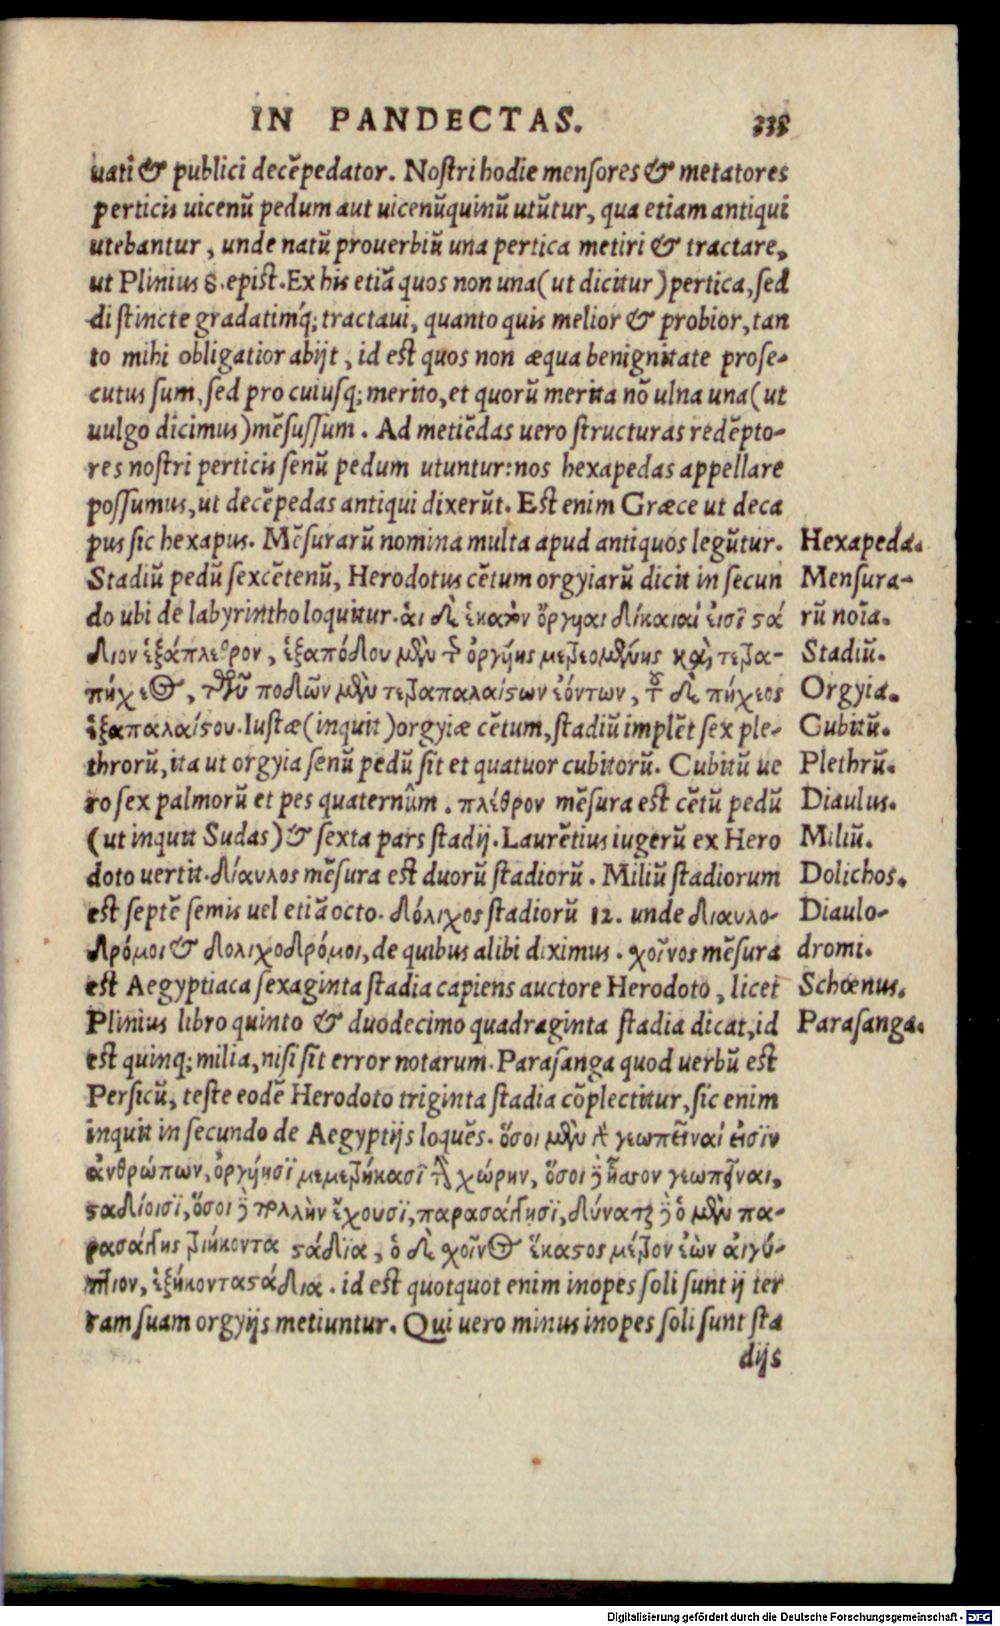 IN PANDECTAS. 335
uati & publici decēpedator. Nostri hodie mensores & metatores
perticis uicenū pedum aut uicenūquinū utūtur, qua etiam antiqui
utebantur, unde natū prouerbiū una pertica metiri & tractare,
ut Plinius 8. epist. Ex his etiā quos non una (ut dicitur) pertica, sed
distincte gradatimq́; tractaui, quanto quis melior & probior, tan
to mihi obligatior abijt, id est quos non æqua benignitate prose-
cutus sum, sed pro cuiusq; merito, et quorū merita nō ulna una (ut
uulgo dicimus) mēsussum. Ad metiēdas uero structuras redēpto-
res nostri perticis senū pedum utuntur: nos hexapedas appellare
possumus, ut decēpedas antiqui dixerūt. Est enim Græce ut deca
pus sic hexapus. Mēsurarū nomina multa apud antiquos legūtur.
Hexapeda.
Stadiū pedū sexcētenū, Herodotus cētum orgyiarū dicit in secun
Mensura-
do ubi de labyrintho loquitur. ἁι δὲ ἑκατὸν ὄργυιαι δίκαιαί ἐισῒ στά
rū noīa.
διον ἑξάπλεθρον, ἑξαπόδου μὲν τῆς ὀργυίης μετρεομένης καὶ τετρα-
Stadiū.
πήχεος, τῶν ποδῶν μὲν τετραπαλαίστων ἐόντων, τοῦ δὲ πήχεος
Orgyia.
ἑξαπαλαίστου. Iustæ (inquit) orgyiæ cētum, stadiū implēt sex ple-
Cubitū.
throrū, ita ut orgyia senū pedū sit et quatuor cubitorū. Cubitū ue
Plethrū.
ro sex palmorū et pes quaternûm. πλέθρον mēsura est cētū pedū
Diaulus.
(ut inquit Sudas) & sexta pars stadij. Laurētius iugerū ex Hero
Miliū.
doto uertit. δίαυλος mēsura est duorū stadiorū. Miliū stadiorum
Dolichos.
est septē semis uel etiā octo. δόλιχος stadiorū 12. unde διαυλο-
Diaulo-
δρόμοι & δολιχοδρόμοι, de quibus alibi diximus. χοῖνος mēsura
dromi.
est Aegyptiaca sexaginta stadia capiens auctore Herodoto, licet
Schœnus.
Plinius libro quinto & duodecimo quadraginta stadia dicat, id
Parasanga.
est quinq; milia, nisi sit error notarum. Parasanga quod uerbū est
Persicū, teste eodē Herodoto triginta stadia cōplectitur, sic enim
inquit in secundo de Aegyptijs loquēs. ὅσοι μὲν γεωπεῖναί ἐισῒν
ἀνθρώπων, ὀργυίησῒ μεμετρήκασῒ τὴν χώρην, ὅσοι δὲ ἧσσον γεωπεῖναι,
σταδίοισῒ, ὅσοι δὲ πολλὴν ἔχουσῒ, παρασάγγησῒ, δύναται δὲ ὁ μὲν πα-
ρασάγγης τριήκοντα στάδϊα, ὁ δὲ χοῖνος ἕκαστος μέτρον ἐὼν ἀιγύ-
πτιον, ἑξήκοντα στάδια. id est quotquot enim inopes soli sunt ij ter
ram suam orgyijs metiuntur. Qui uero minus inopes soli sunt sta
dijs
Digitalisierung gefördert durch die Deutsche Forschungsgemeinschaft - DFG